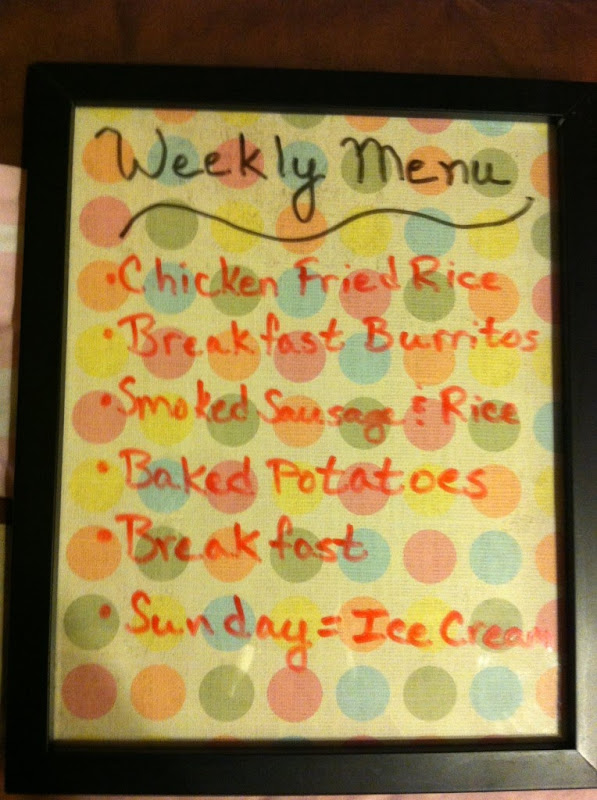 Weekly Menu
• Chicken Fried Rice
• Breakfast Burritos
• Smoked Sausage & Rice
• Baked Potatoes
• Breakfast
• Sunday = Ice Cream